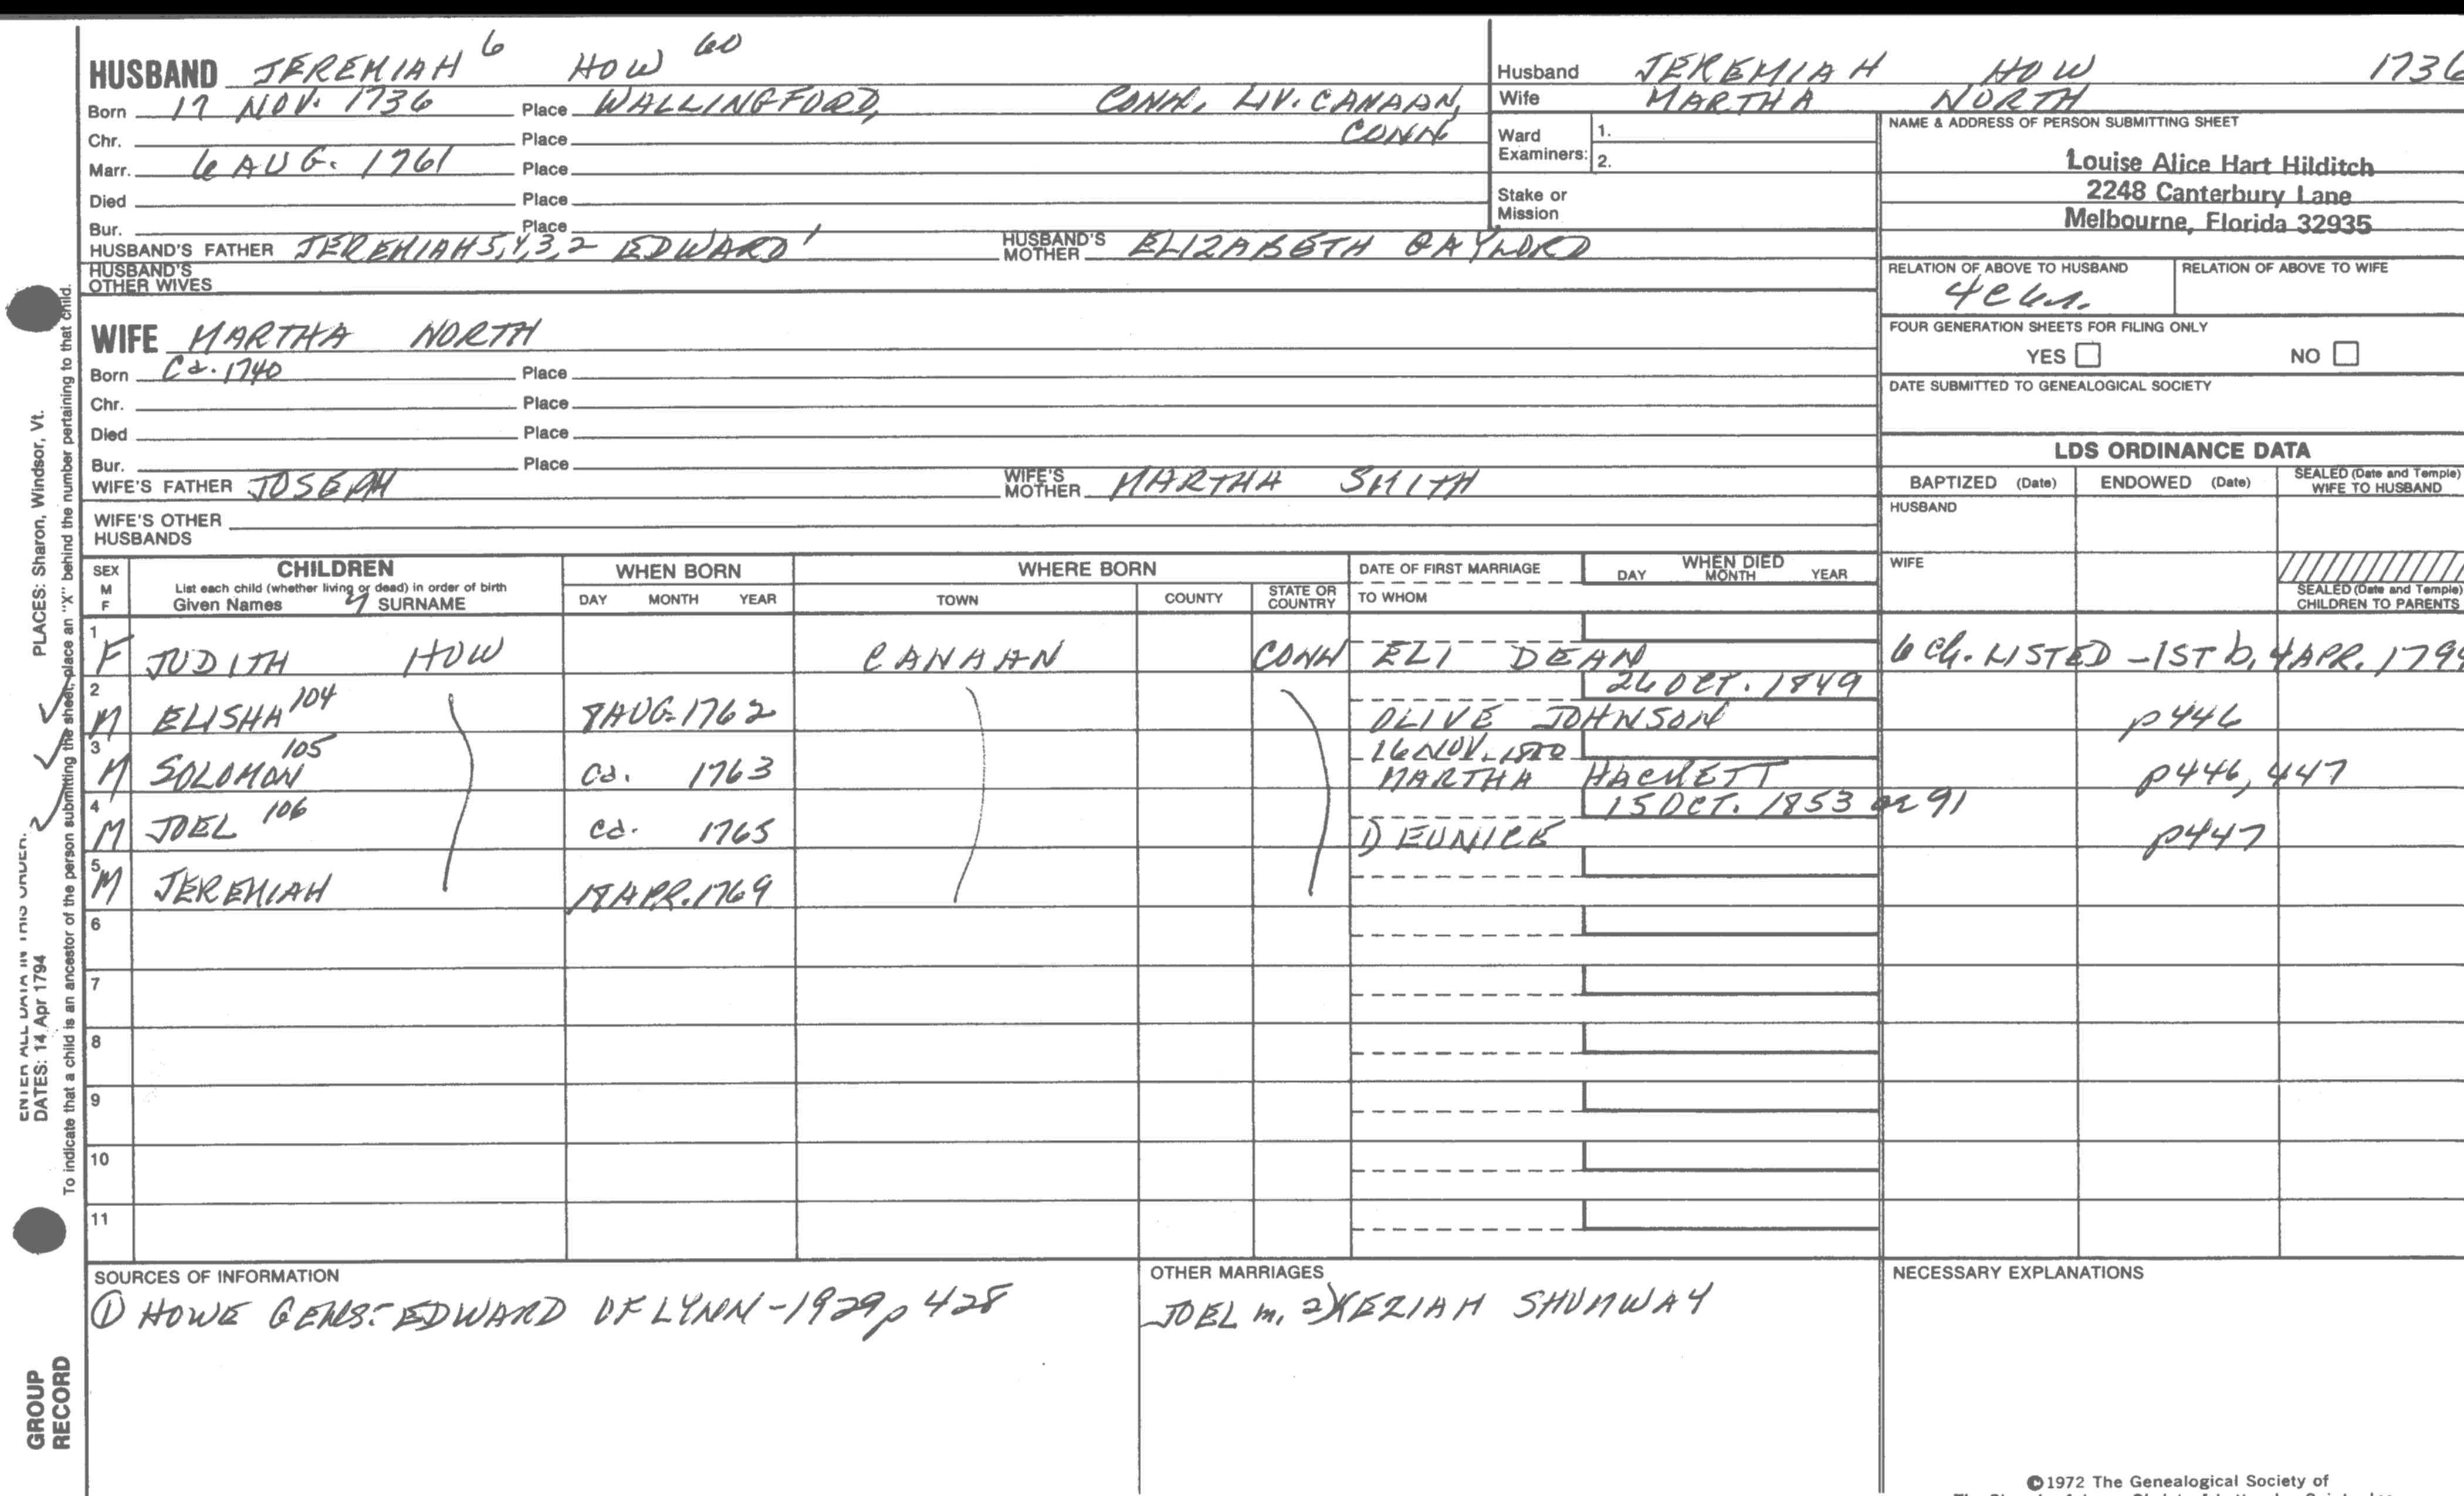 HUSBAND JEREMIAH 6 HOW 60
Born 17 NOV. 1736 Place WALLINGFORD, CONN. LIV. CANAAN,
Chr. Place CONN
Marr. 6 AUG. 1761 Place
Died Place
Bur. Place
HUSBAND'S FATHER JEREMIAH 5,4,3,2 EDWARD 1 HUSBAND'S MOTHER ELIZABETH GAYLORD
HUSBAND'S OTHER WIVES
Husband JEREMIAH HOW 1736
Wife MARTHA NORTH
Ward Examiners: 1.
2.
Stake or Mission
NAME & ADDRESS OF PERSON SUBMITTING SHEET
Louise Alice Hart Hilditch
2248 Canterbury Lane
Melbourne, Florida 32935
RELATION OF ABOVE TO HUSBAND RELATION OF ABOVE TO WIFE
FOUR GENERATION SHEETS FOR FILING ONLY
YES NO
DATE SUBMITTED TO GENEALOGICAL SOCIETY
WIFE MARTHA NORTH
Born Ca. 1740 Place
Chr. Place
Died Place
Bur. Place
WIFE'S FATHER JOSEPH WIFE'S MOTHER MARTHA SMITH
WIFE'S OTHER HUSBANDS
LDS ORDINANCE DATA
BAPTIZED (Date) ENDOWED (Date) SEALED (Date and Temple) WIFE TO HUSBAND
HUSBAND
WIFE
SEALED (Date and Temple) CHILDREN TO PARENTS
SEX M F CHILDREN WHEN BORN WHERE BORN DATE OF FIRST MARRIAGE WHEN DIED
List each child (whether living or dead) in order of birth
Given Names SURNAME DAY MONTH YEAR TOWN COUNTY STATE OR COUNTRY TO WHOM DAY MONTH YEAR
1 F JUDITH HOW CANAAN CONN ELI DEAN 6 Ch. LISTED - 1ST b, 4 APR.
26 OCT. 1849
2 M ELISHA 104 8 AUG. 1762 OLIVE JOHNSON p446
16 NOV.
3 M SOLOMON 105 Ca. 1763 MARTHA HACKETT p446, 447
15 OCT. 1853 or 91
4 M JOEL 106 Ca. 1765 1) EUNICE p447
5 M JEREMIAH 18 APR. 1769
6
7
8
9
10
11
SOURCES OF INFORMATION
① HOWE GENS: EDWARD OF LYNN - 1929 p 428
OTHER MARRIAGES
JOEL m. 2) KEZIAH SHUMWAY
NECESSARY EXPLANATIONS
©1972 The Genealogical Society of
PLACES: Sharon, Windsor, Vt.
ENTER ALL DATA IN THIS ORDER:
DATES: 14 Apr 1794
To indicate that a child is an ancestor of the person submitting the sheet, place an "X" behind the number pertaining to that child.
GROUP
RECORD